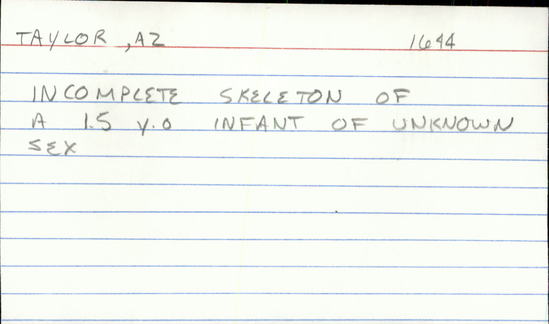 TAYLOR, AZ 1644
INCOMPLETE SKELETON OF
A 1.5 y.o INFANT OF UNKNOWN
SEX